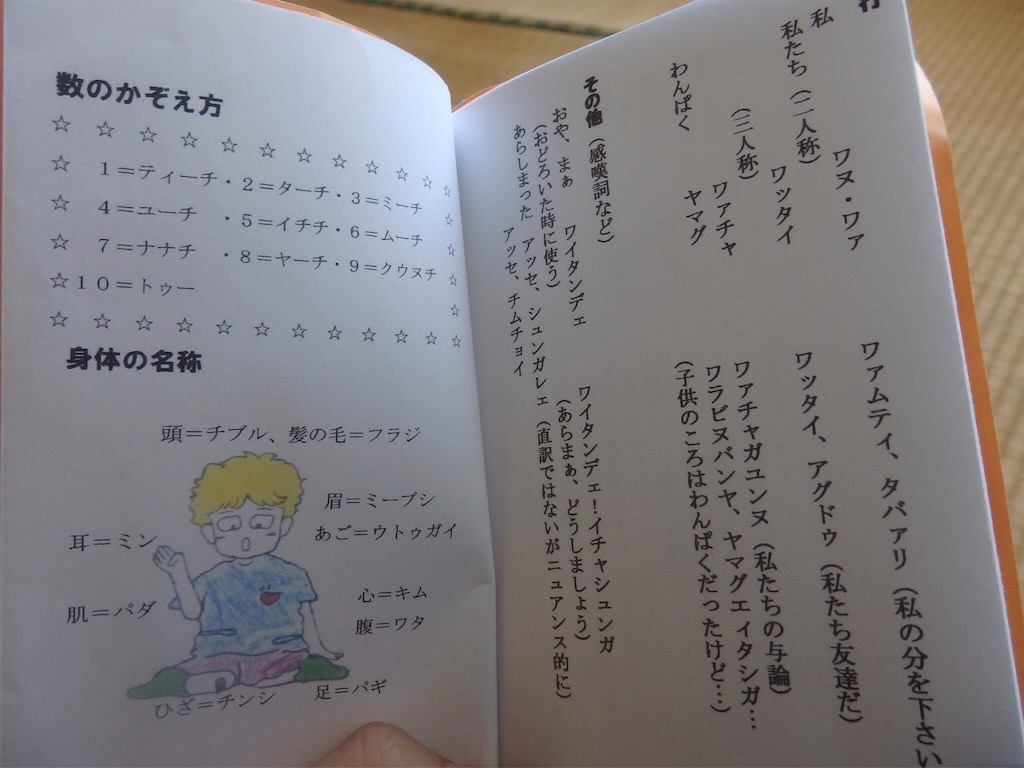 行
私 ワヌ・ワァ ワァムティ、タバアリ（私の分を下さい
私たち（二人称） ワッタイ ワッタイ、アグドゥ（私たち友達だ）
（三人称） ワァチャ ワァチャガユンヌ（私たちの与論）
わんぱく ヤマグ ワラビヌバンヤ、ヤマグエイタシガ…
（子供のころはわんぱくだったけど…）
その他（感嘆詞など）
おや、まぁ ワイタンデェ ワイタンデェ！イチャシュンガ
（おどろいた時に使う） （あらまぁ、どうしましょう）
あらしまった アッセ、シュンガレェ（直訳ではないがニュアンス的に）
アッセ、チムチョイ
数のかぞえ方
☆ ☆ ☆ ☆ ☆ ☆ ☆ ☆ ☆ ☆ ☆
☆ 1＝ティーチ・2＝ターチ・3＝ミーチ ☆
☆ 4＝ユーチ ・5＝イチチ・6＝ムーチ ☆
☆ 7＝ナナチ ・8＝ヤーチ・9＝クウヌチ ☆
☆10＝トゥー ☆
☆ ☆ ☆ ☆ ☆ ☆ ☆ ☆ ☆ ☆ ☆
身体の名称
頭＝チブル、髪の毛＝フラジ
眉＝ミーブシ
あご＝ウトゥガイ
耳＝ミン
心＝キム
肌＝パダ
腹＝ワタ
ひざ＝チンシ 足＝パギ